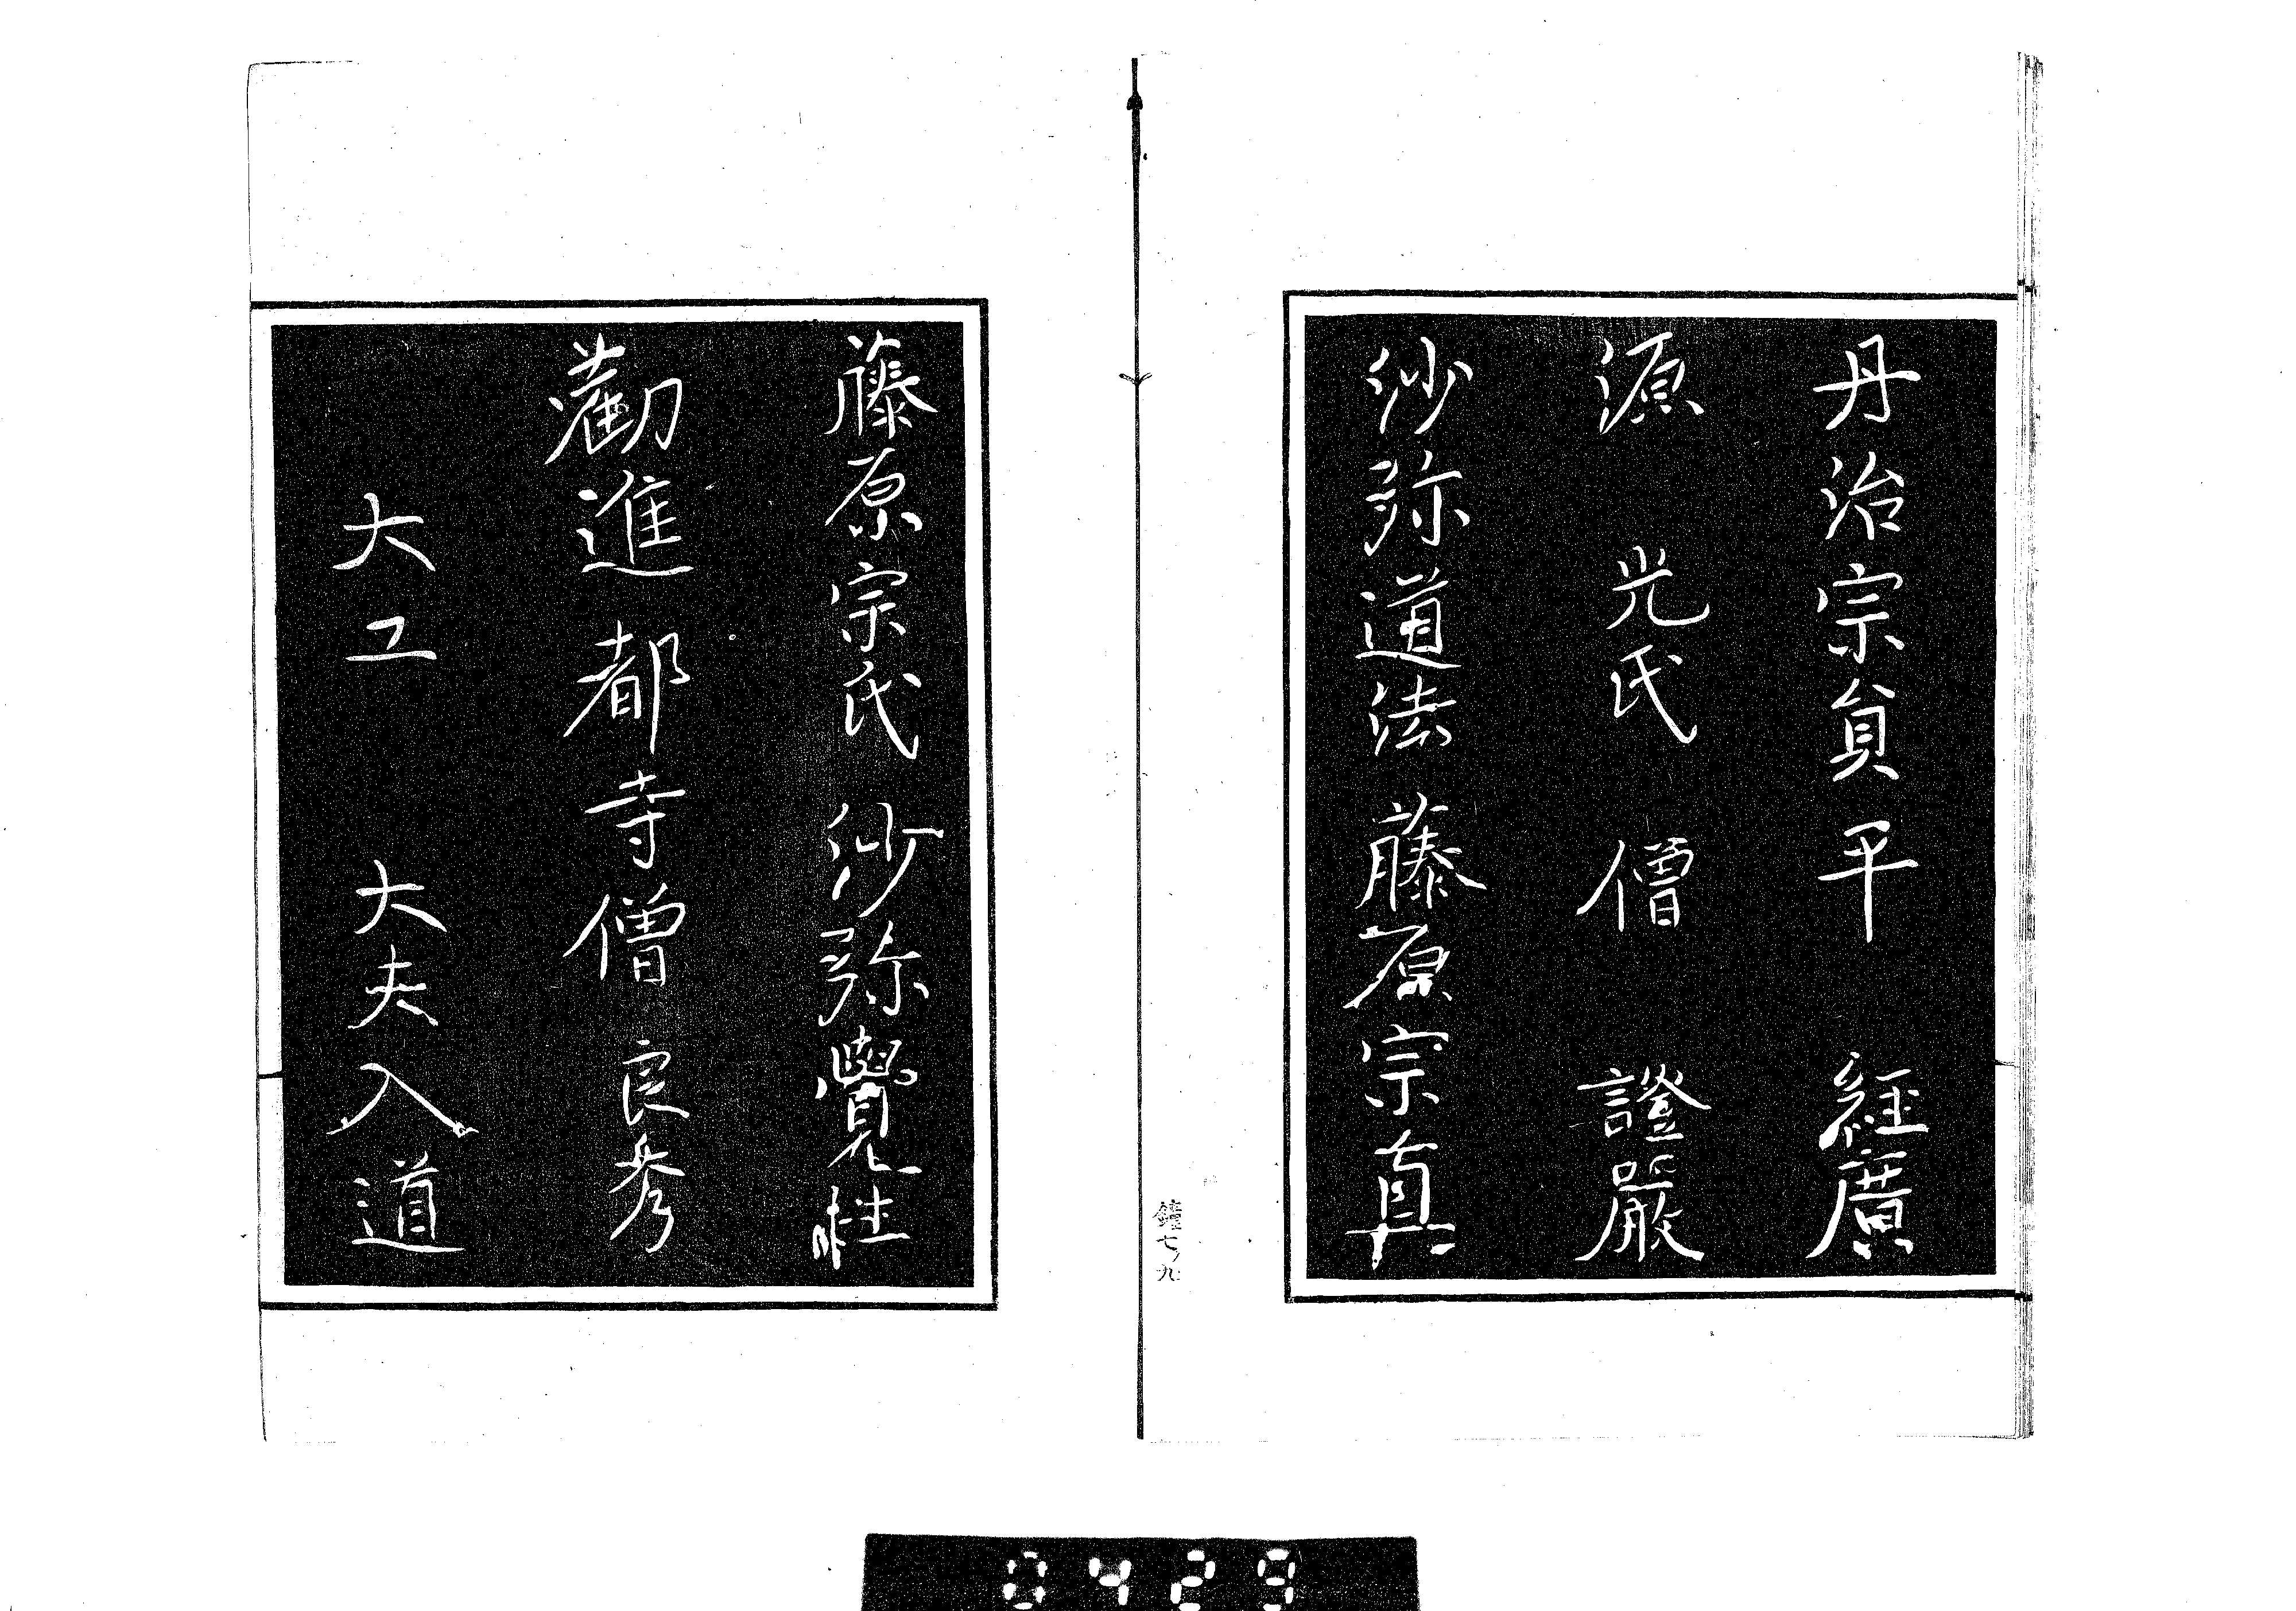 丹治宗貞平 經廣
源 光氏 僧 證嚴
沙弥道法藤原宗真
鐘七ノ九
藤原宗氏沙弥覺性
勸進都寺僧良秀
大工 大夫入道
0429